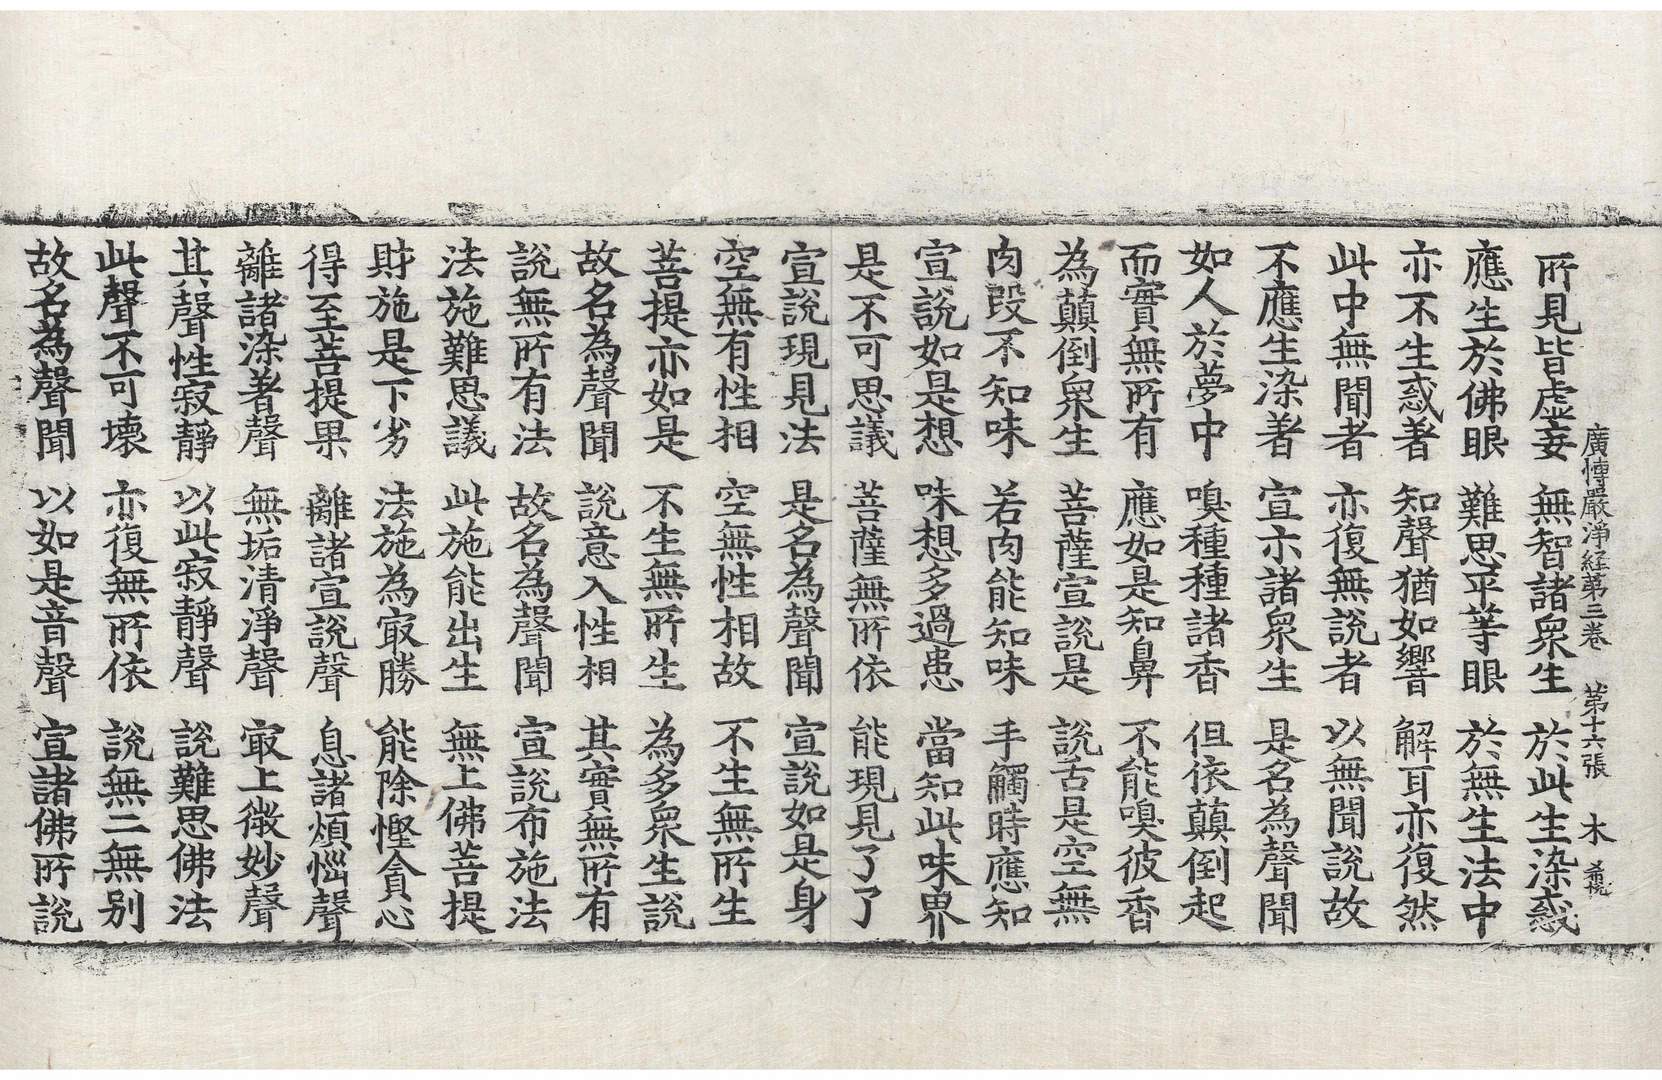 廣博嚴淨経第三卷 第十六張 木
所見皆虛妄 無智諸衆生 於此生染惑
應生於佛眼 難思平等眼 於無生法中
亦不生惑著 知聲猶如響 解耳亦復然
此中無聞者 亦復無說者 以無聞說故
不應生染著 宣示諸衆生 是名為聲聞
如人於夢中 嗅種種諸香 但依顛倒起
而實無所有 應如是知鼻 不能嗅彼香
為顛倒衆生 菩薩宣說是 說舌是空無
肉段不知味 若肉能知味 手觸時應知
宣說如是想 味想多過患 當知此味界
是不可思議 菩薩無所依 能現見了了
宣說現見法 是名為聲聞 宣說如是身
空無有性相 空無性相故 不生無所生
菩提亦如是 不生無所生 為多衆生說
故名為聲聞 說意入性相 其實無所有
說無所有法 故名為聲聞 宣說布施法
法施難思議 此施能出生 無上佛菩提
財施是下劣 法施為㝡勝 能除慳貪心
得至菩提果 離諸宣說聲 息諸煩惱聲
離諸染著聲 無垢清淨聲 㝡上微妙聲
其聲性寂靜 以此寂靜聲 說難思佛法
此聲不可壞 亦復無所依 說無二無別
故名為聲聞 以如是音聲 宣諸佛所說